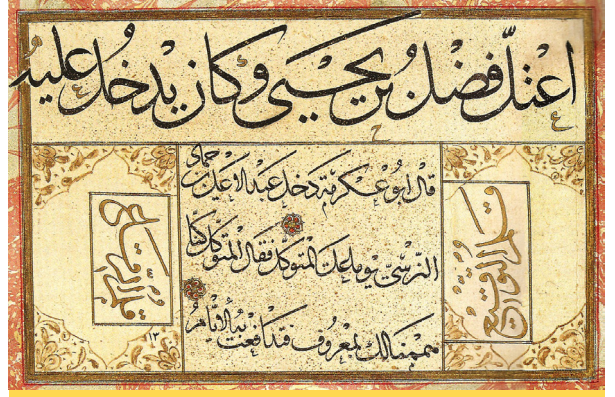 اعتلّ فضل بن يحيى وكان يدخل عليه
قال ابو عكرمة دخل عبد الاعلى بن حماد
النرسي يوما على المتوكل فقال المتوكل كنا
هممنا لك بمعروف فتدافعت به الايام
قلم التوقيع
قلم الرقاع
١٣